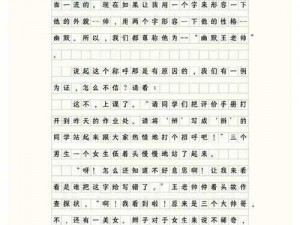 面一流的。现在如果让我用一个字来形容一下
他的外貌——帅。用两个字形容一下他的性格—
幽默。所以，我们都尊称他为——“幽默王老帅
”。
说起这个称呼那是有原因的，我们有一例
为证，怎么不信？请看：
这不，上课了。“请同学们把评价手册打
开到昨天的作业处。请将‘辫’写成‘辩’的
同学站起来跟大家热情地打个招呼吧！”三个
男生一个女生低着头慢慢地站了起来。
“呀！怎么还知道不好意思啊！让我来看
看是谁把这字给写错了。”王老帅伸着头故作
查探状，“啊！我看到啦！原来是三个大帅哥
不，还有一美女。辫子对于女生来说不稀奇，